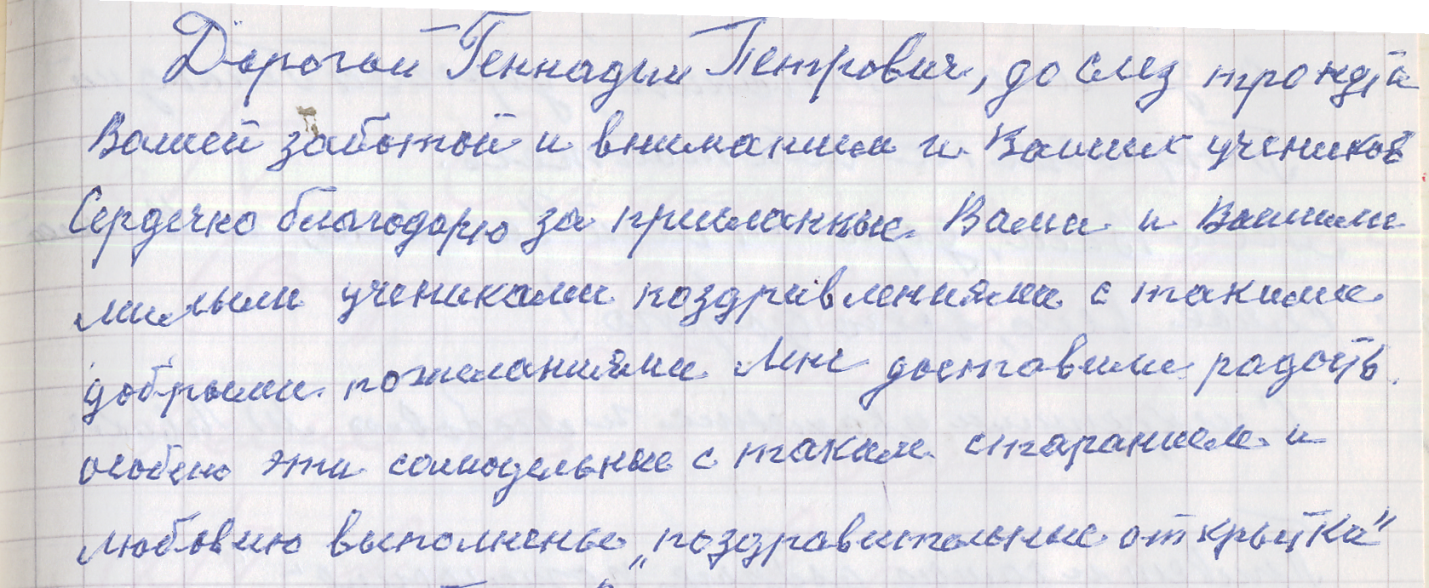 Дорогой Геннадии Петрович, до слез тронута
Вашей заботой и вниманием и Ваших учеников
Сердечно благодарю за присланные Вами и Вашими
милыми учениками поздравлениями с такими
добрыми пожеланиями Мне доставили радость.
особено эти самодельные с таким старанием и
любовию выполненые „поздравительные открытки"